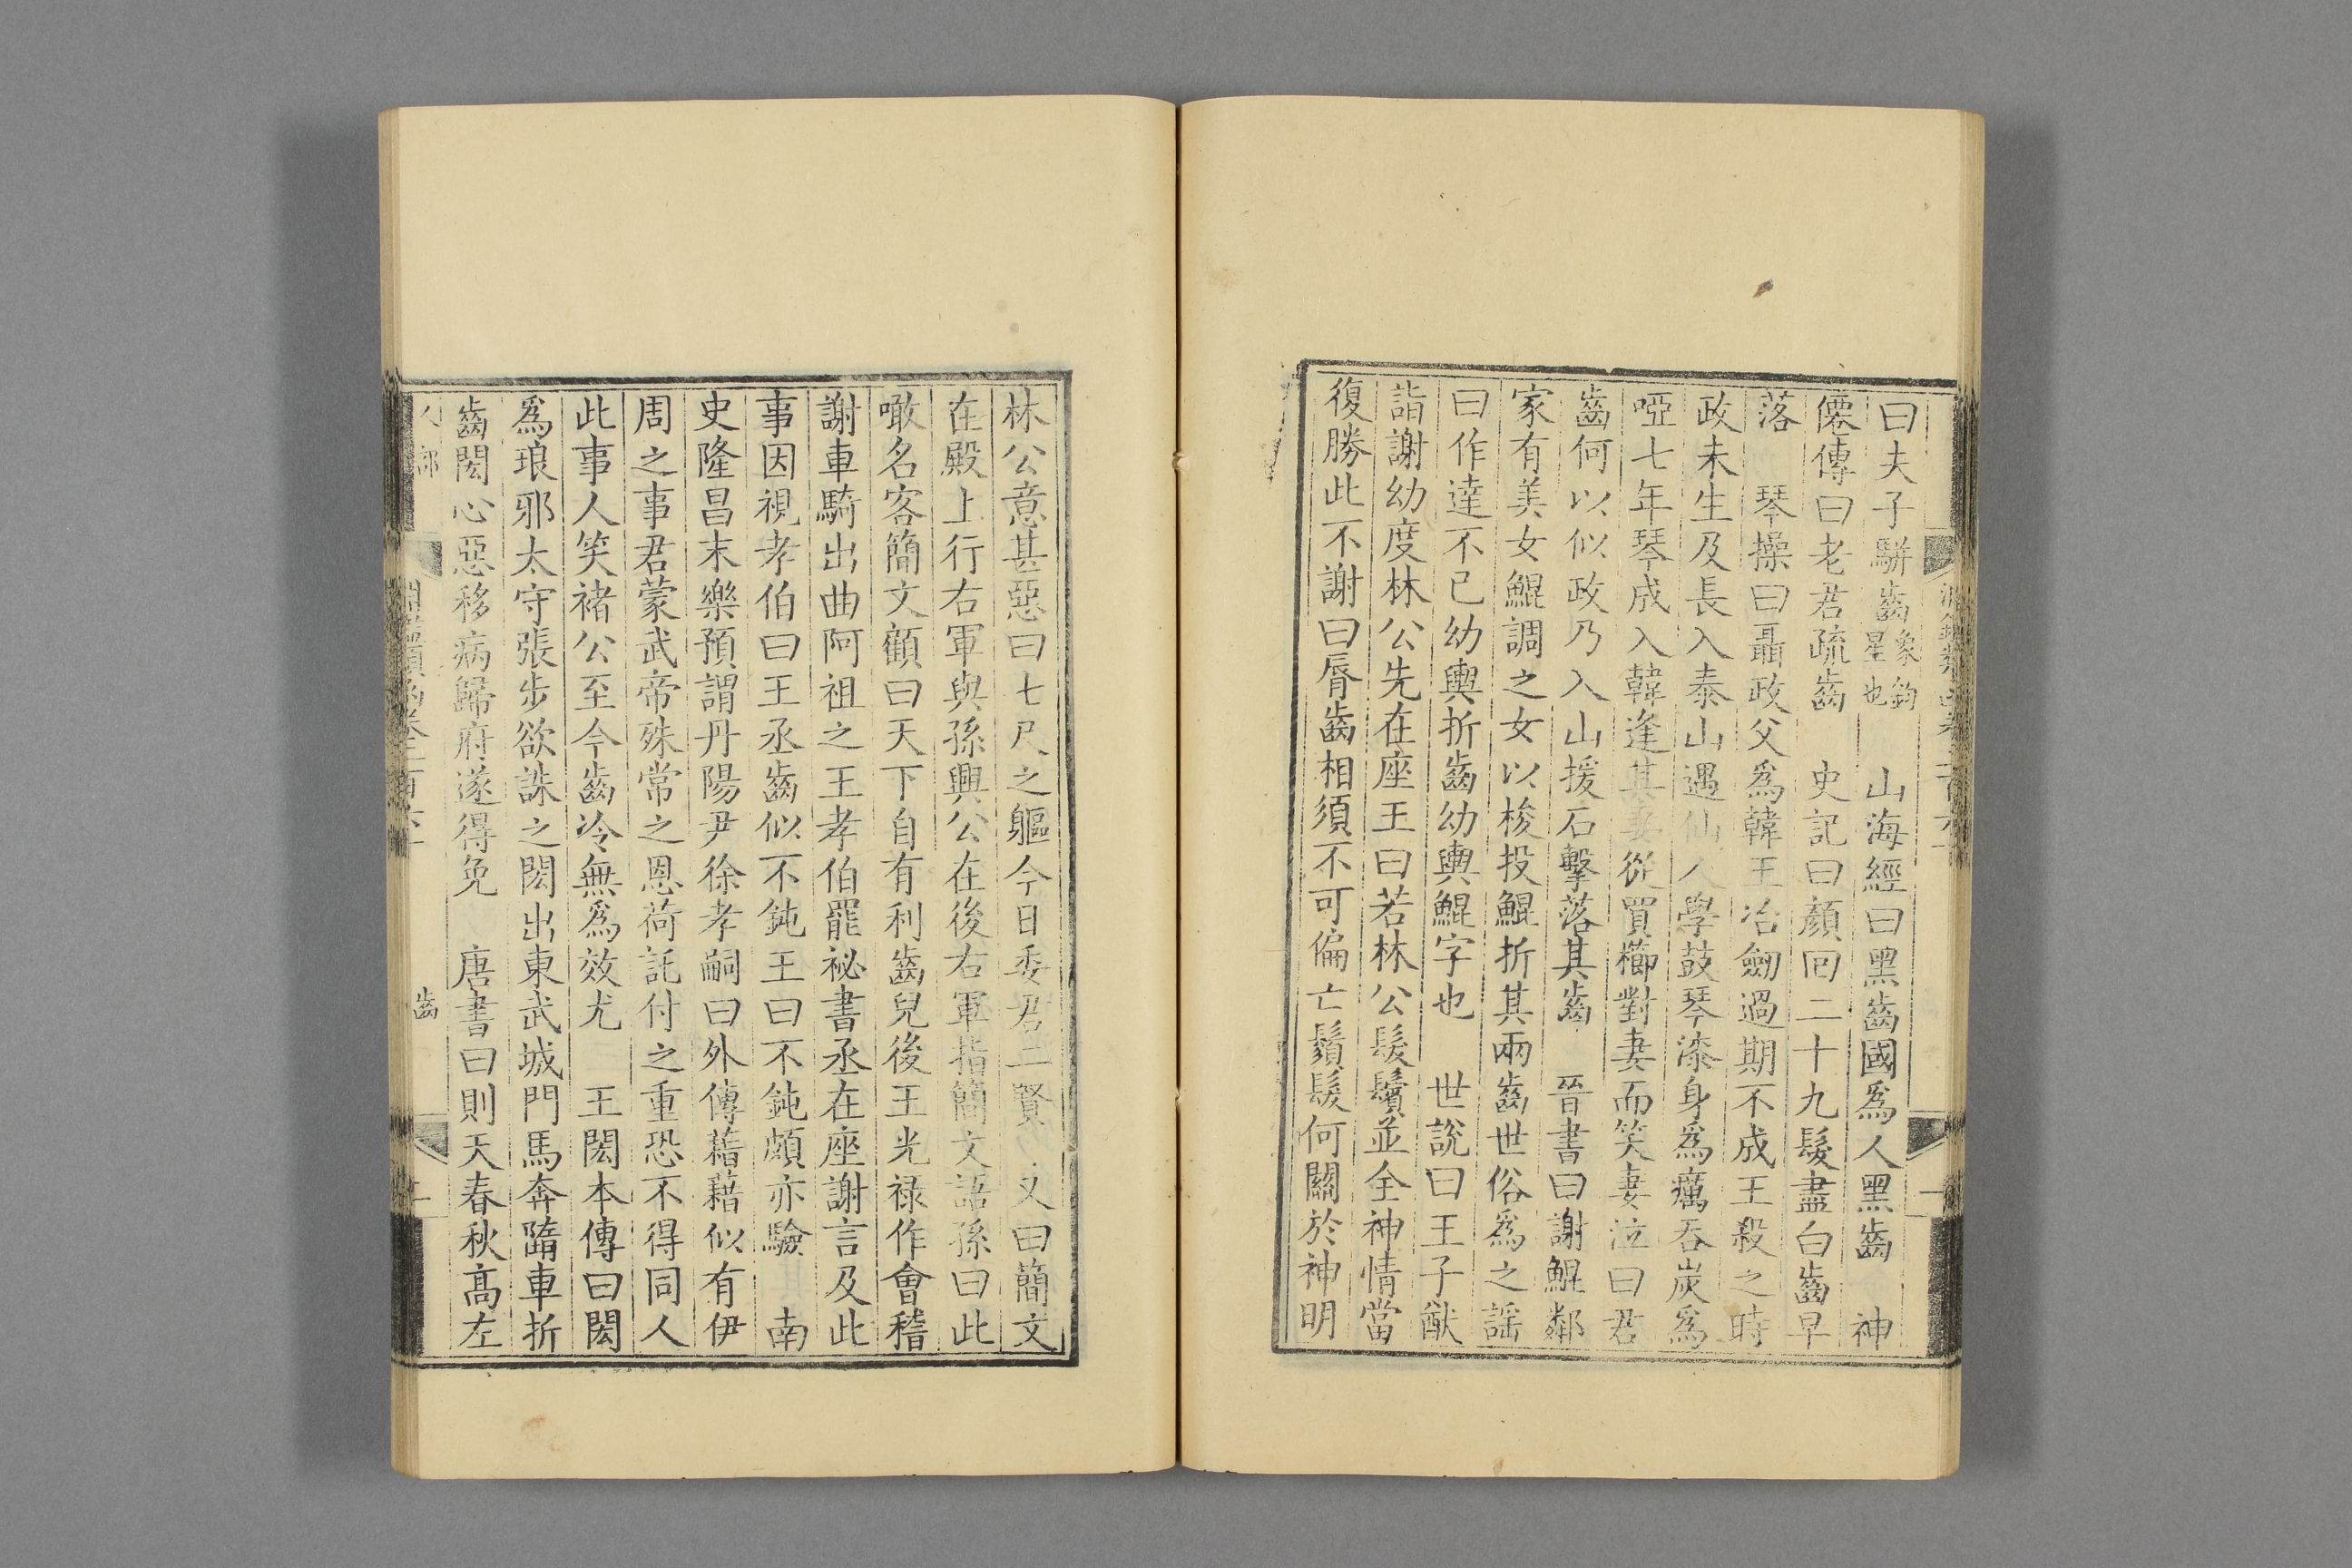 曰夫子駢齒象鉤星也　山海經曰黑齒國爲人黑齒　神
僊傳曰老君疏齒　史記曰顏回二十九髮盡白齒早
落　琴操曰聶政父爲韓王冶劒過期不成王殺之時
政未生及長入泰山遇仙人學鼓琴漆身爲癘吞炭爲
啞七年琴成入韓逢其妻從買櫛對妻而笑妻泣曰君
齒何以似政乃入山援石擊落其齒　晉書曰謝鯤鄰
家有美女鯤調之女以梭投鯤折其兩齒世俗爲之謡
曰作達不已幼輿折齒幼輿鯤字也　世說曰王子猷
詣謝幼度林公先在座王曰若林公髮鬢並全神情當
復勝此不謝曰脣齒相須不可偏亡鬚髮何關於神明
林公意甚惡曰七尺之軀今日委君二賢　又曰簡文
在殿上行右軍與孫興公在後右軍指簡文語孫曰此
噉名客簡文顧曰天下自有利齒兒後王光祿作會稽
謝車騎出曲阿祖之王孝伯罷祕書丞在座謝言及此
事因視孝伯曰王丞齒似不鈍王曰不鈍頗亦驗　南
史隆昌末樂預謂丹陽尹徐孝嗣曰外傳藉藉似有伊
周之事君蒙武帝殊常之恩荷託付之重恐不得同人
此事人笑褚公至今齒冷無爲效尤　王閎本傳曰閎
爲琅邪太守張步欲誅之閎出東武城門馬奔隋車折
齒閎心惡移病歸府遂得免　唐書曰則天春秋高左
人部
淵鑑類函卷二百六十
齒